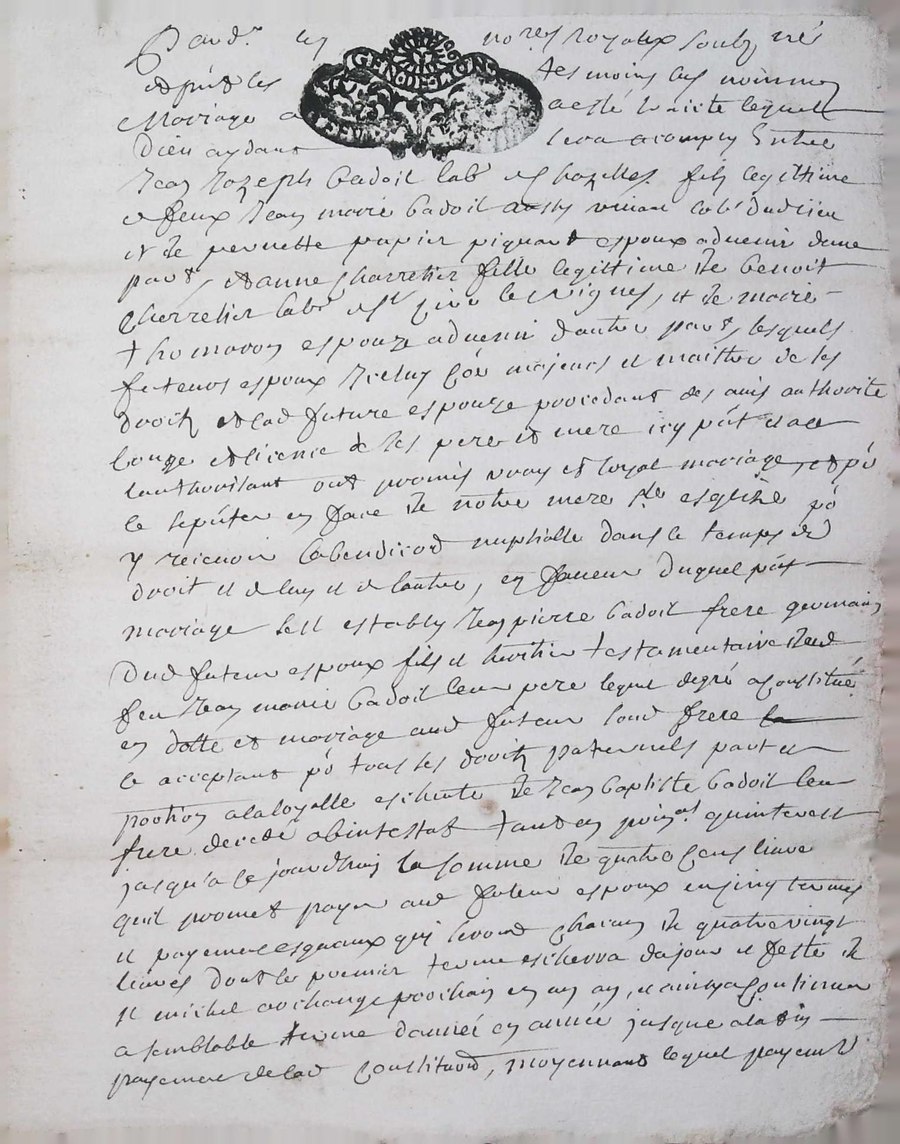 Pard.t les no.res royaux soubz.nés
et p̃nts les tesmoins bas nommes
Mariage a GEN DE LYON a esté traicte lequel
Dieu aydant DEUX sera acomply Entre
Jean Jozeph badoil lab.r de chazelles fils legittime
de feux Jean marie badoil aussy vivant lab.r dudlieu
et de pernette papier pignard espoux advenir dune
part, et anne charretier fille legittime de benoit
charretier lab.r de st cire les vignes, et de marie
thomavon espouze advenir dautre part, lesquels
futeurs espoux Icelluy com̃e majeur et maistre de ses
droits et lad future espouze procedant des avis authorite
louze et licence de ses pere et mere icy p̃nt et a ce
lauthorisant ont promis vray et loyal mariage, et po.r
ce se p̃nter en face de notre mere s.te esglise po.r
y recevoir la benediction nuptialle dans le temps de
droit et de lun et de lautre, en faveur duquel p̃nt
mariage sest estably Jean pierre badoil frere germain
Dud futeur espoux fils et heritier testamentaire dud
feu Jean marie badoil leur pere lequel degré a constitué
en dotte et mariage aud futeur soud frere
ce acceptant po.r tous ses droits paternels part et
portion a la loyalle escheute de Jean baptiste badoil leur
frere decede abintestat tant en prin.al quinterest
jusqua ce jourdhuy la somme de quatre cens livre
quil promet payer aud futeur espoux en cinq termes
et payement esgaux quy seront chacun de quatre vingt
livres dont le premier terme escherra du jour et feste de
st michel archange prochain en un an, et ainsy a continuer
a semblable terme dannée en année jusque a la fin
payement de lad constitution, moyennant lequel payement